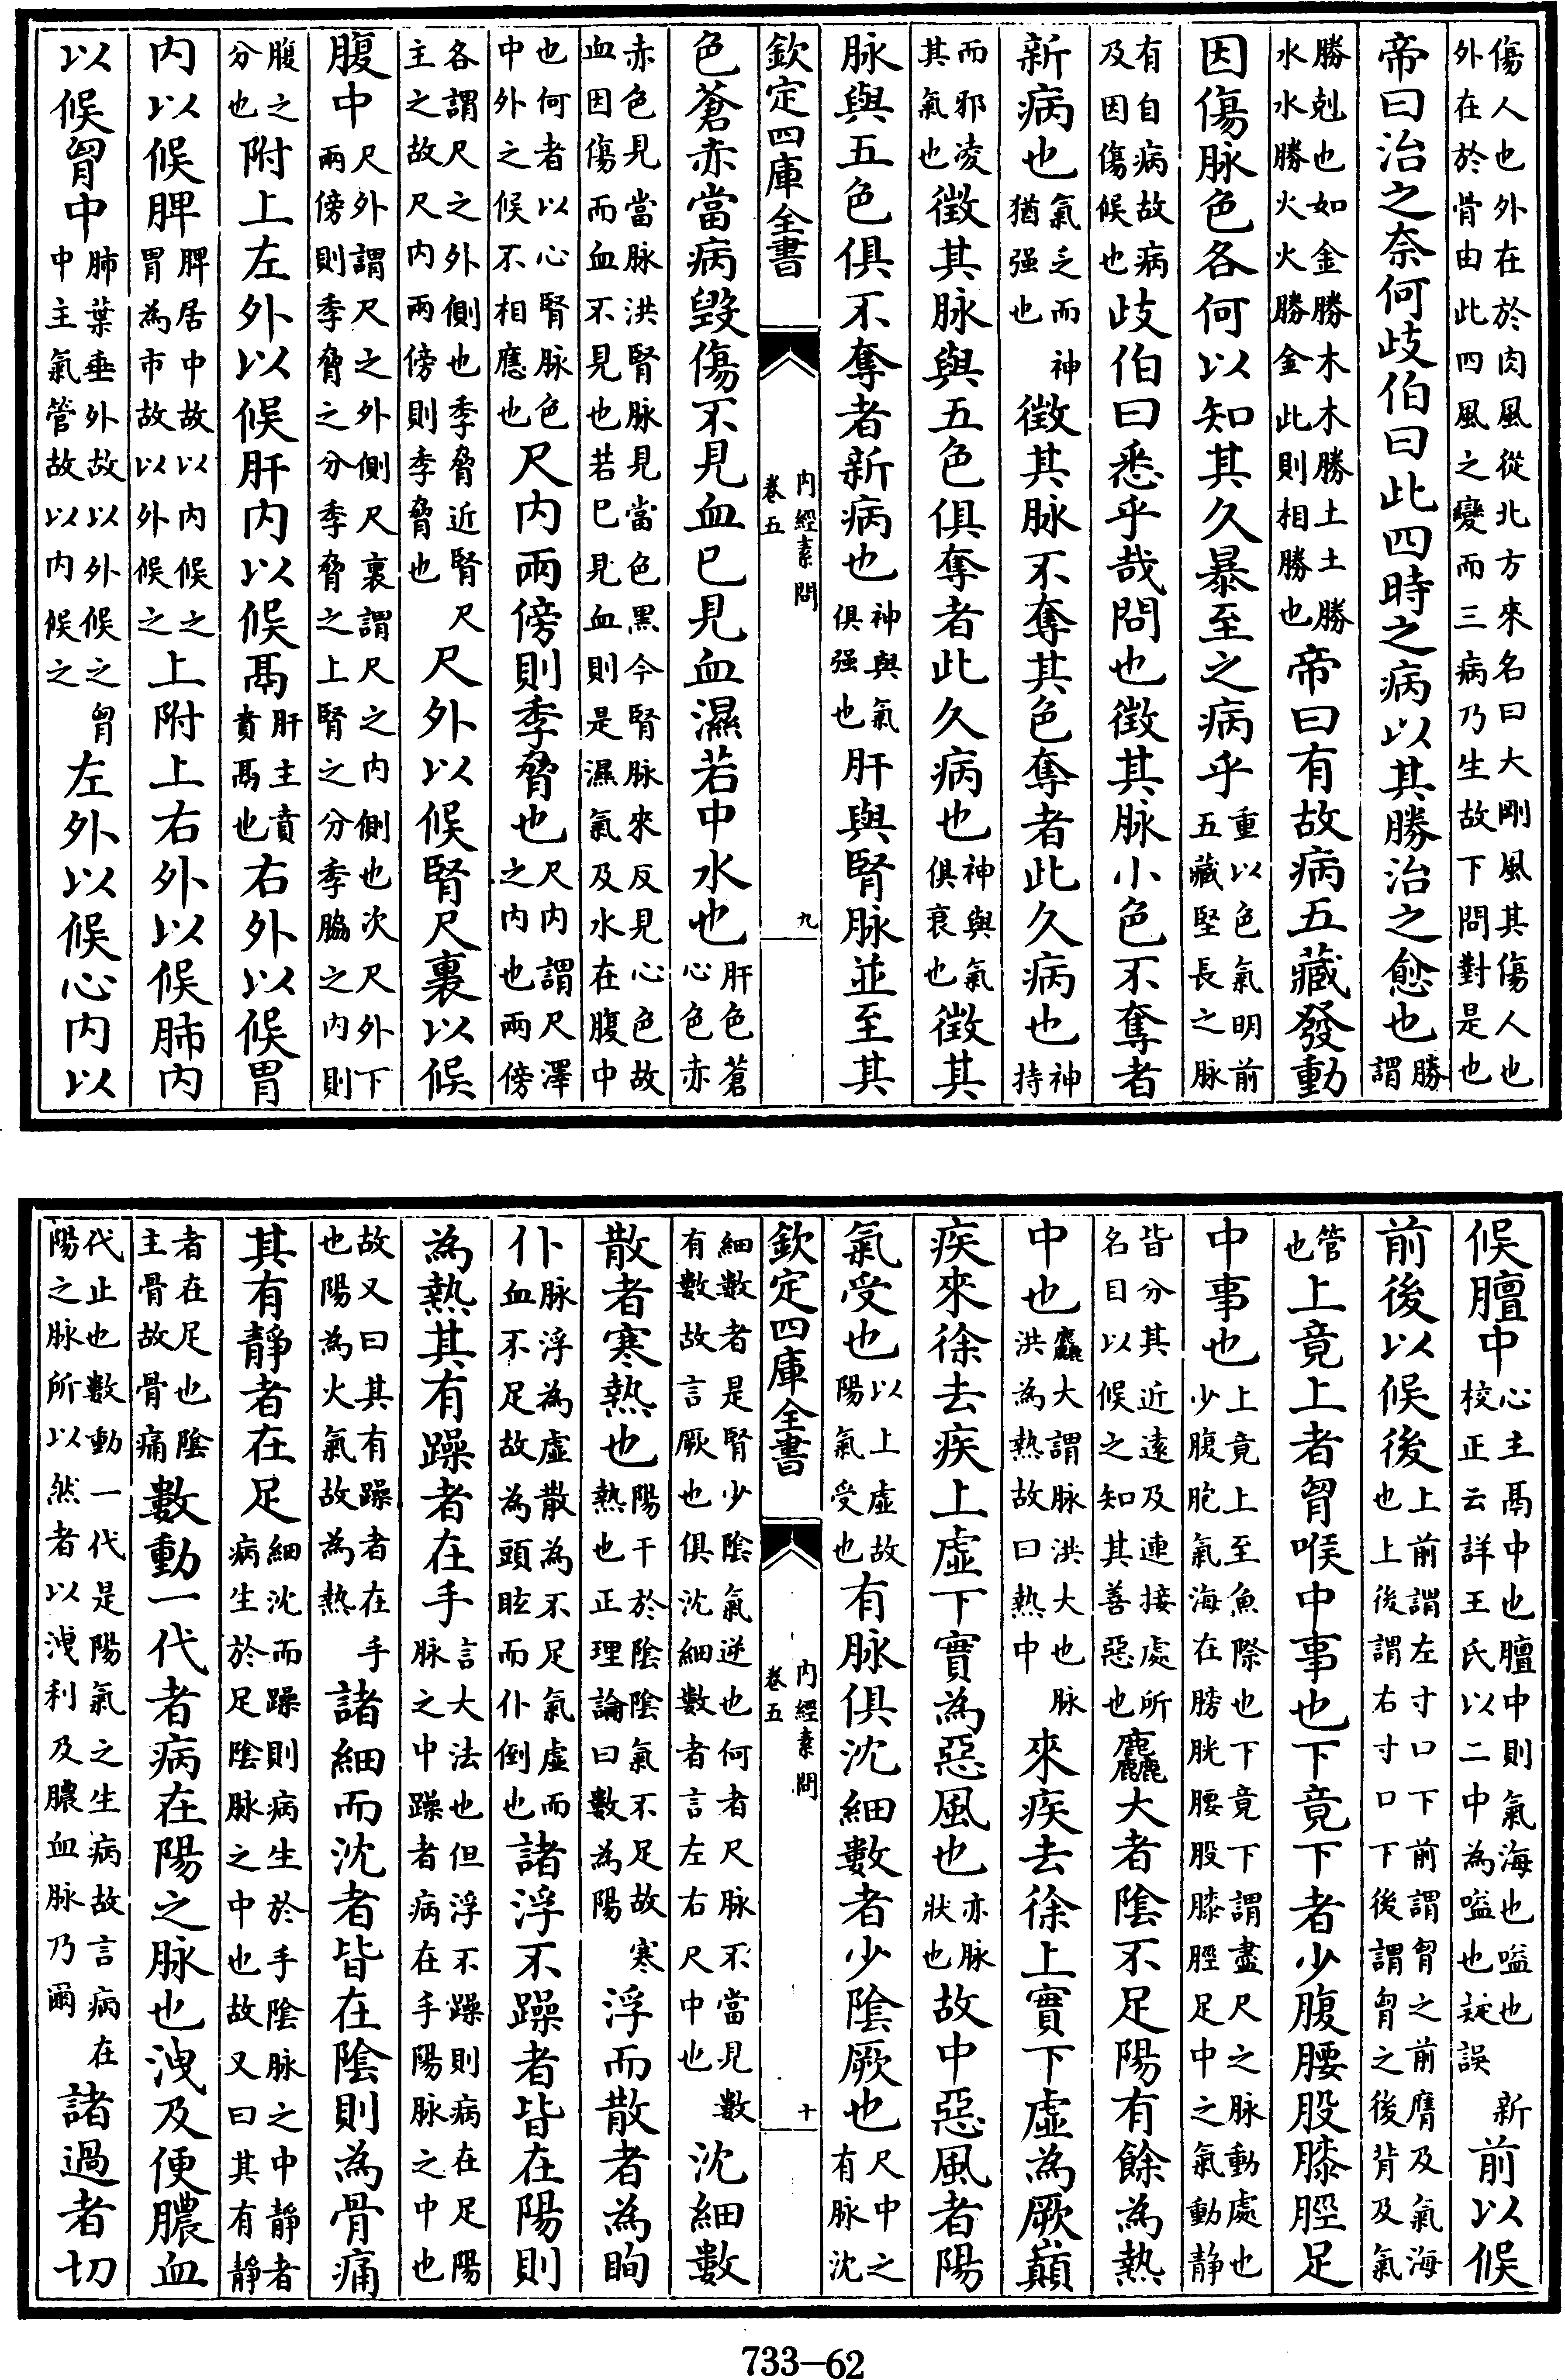 傷人也外在於肉風從北方來名曰大剛風其傷人也外在於骨由此四風之變而三病乃生故下問對是也
帝曰治之奈何歧伯曰此四時之病以其勝治之愈也勝謂
勝剋也如金勝木木勝土土勝水水勝火火勝金此則相勝也帝曰有故病五藏發動
因傷脉色各何以知其久暴至之病乎重以色氣明前五藏堅長之脉
有自病故病及因傷候也歧伯曰悉乎哉問也徵其脉小色不奪者
新病也氣乏而神猶强也徵其脉不奪其色奪者此久病也神持
而邪凌其氣也徵其脉與五色俱奪者此久病也神與氣俱衰也徵其
脉與五色俱不奪者新病也神與氣俱强也肝與腎脉並至其
欽定四庫全書 內經素問 卷五 九
色蒼赤當病毀傷不見血已見血濕若中水也肝色蒼心色赤
赤色見當脉洪腎脉見當色黑今腎脉來反見心色故血因傷而血不見也若已見血則是濕氣及水在腹中
也何者以心腎脉色中外之候不相應也尺內兩傍則季脅也尺內謂尺澤之內也兩傍
各謂尺之外側也季脅近腎尺主之故尺內兩傍則季脅也尺外以候腎尺裏以候
腹中尺外謂尺之外側尺裏謂尺之內側也次尺外下兩傍則季脅之分季脅之上腎之分季脇之內則
腹之分也附上左外以候肝內以候鬲肝主賁賁鬲也右外以候胃
內以候脾脾居中故以內候之胃為市故以外候之上附上右外以候肺內
以候胷中肺葉垂外故以外候之胷中主氣管故以內候之左外以候心內以
候膻中心主鬲中也膻中則氣海也嗌也新校正云詳王氏以二中為嗌也疑誤前以候
前後以候後上前謂左寸口下前謂胷之前膺及氣海也上後謂右寸口下後謂胷之後背及氣
管也上竟上者胷喉中事也下竟下者少腹腰股膝脛足
中事也上竟上至魚際也下竟下謂盡尺之脉動處也少腹胞氣海在膀胱腰股膝脛足中之氣動静
皆分其近遠及連接處所名目以候之知其善惡也麤大者陰不足陽有餘為熱
中也麤大謂脉洪大也脉洪為熱故曰熱中來疾去徐上實下虛為厥巔
疾來徐去疾上虛下實為惡風也亦脉狀也故中惡風者陽
氣受也以上虛故陽氣受也有脉俱沈細數者少陰厥也尺中之有脉沈
細數者是腎少陰氣逆也何者尺脉不當見數有數故言厥也俱沈細數者言左右尺中也沈細數
欽定四庫全書 內經素問 卷五 十
散者寒熱也陽干於陰陰氣不足故寒熱也正理論曰數為陽浮而散者為眴
仆脉浮為虛散為不足氣虛而血不足故為頭眩而仆倒也諸浮不躁者皆在陽則
為熱其有躁者在手言大法也但浮不躁則病在足陽脉之中躁者病在手陽脉之中也
故又曰其有躁者在手也陽為火氣故為熱諸細而沈者皆在陰則為骨痛
其有靜者在足細沈而躁則病生於手陰脉之中靜者病生於足陰脉之中也故又曰其有靜
者在足也陰主骨故骨痛數動一代者病在陽之脉也洩及便膿血
代止也數動一代是陽氣之生病故言病在陽之脉所以然者以洩利及膿血脉乃爾諸過者切
733—62